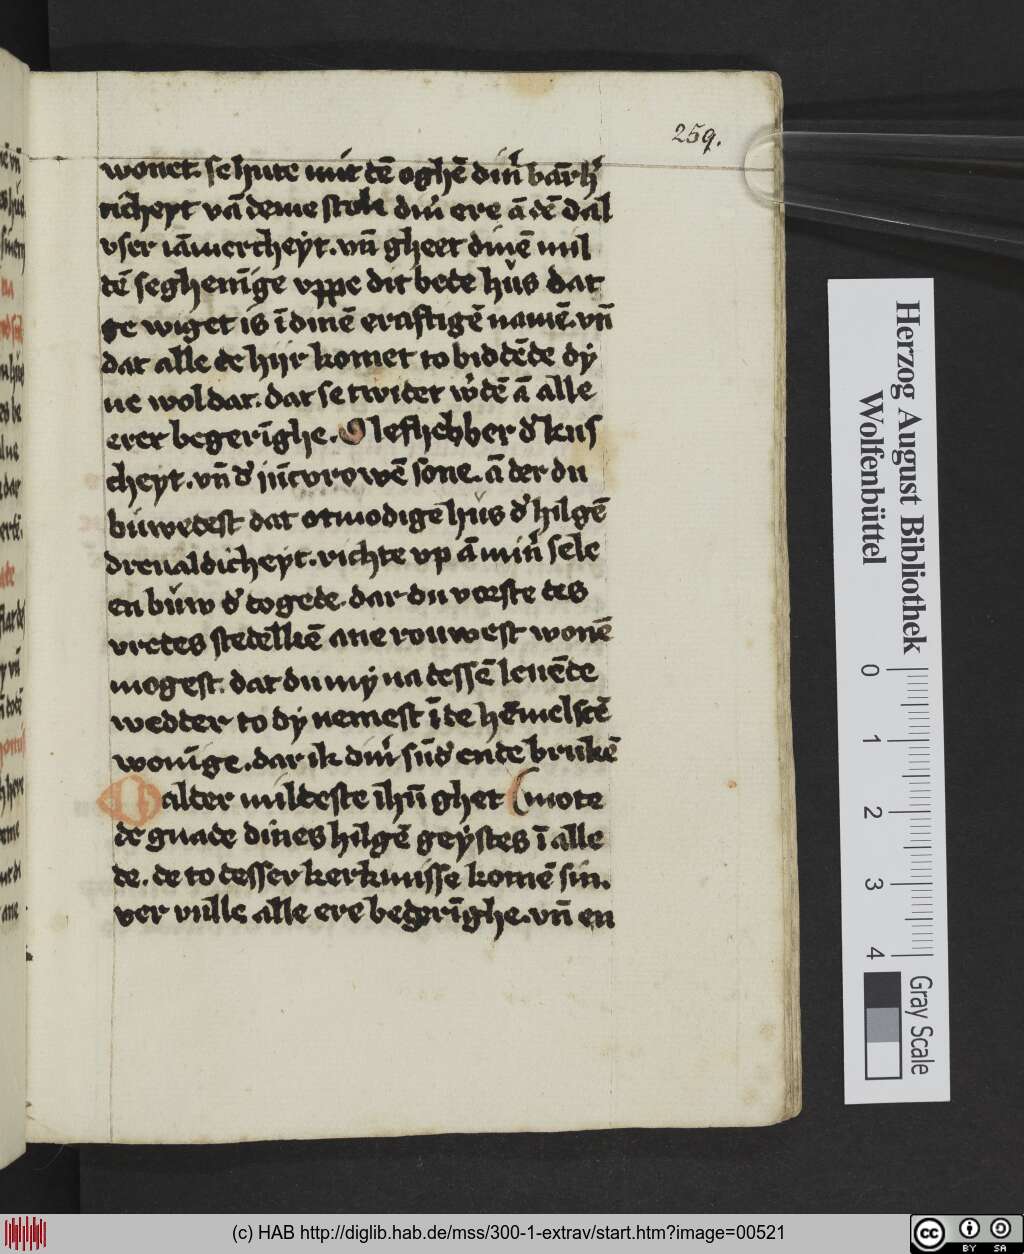 259.
wonet. se hute mit dē oghē din̄ bārh
ticheyt vā deme stole din̄ ere ā dē dal
vser iāmercheyt. vn̄ gheet dinē mil
dē seghenīge vppe dit bede hůs dat
ge wiget is ī dinē craftigē namē. vn̄
dat alle de hijr komet to biddēde dy
ne woldat. dat se twidet w̉dē ā alle
erer begerīghe. O lefhebber d̉ kus
cheyt. vn̄ d̉ jūcvrowē sone. ā der du
buwedest dat otmodigē hůs d̉ hilgē
dreualdicheyt. richte vp ā min̄ sele
en bůw d̉ dogede. dar du vorste des
vredes stedelkē ane rouwest wonē
mogest. dat du my na dessē leuēde
wedder to dy nemest ī de hēmelschē
wonīge. dar ik din̄ sūd̉ ende brukē
Alder mildeste ihū ghet (mote
de gnade dines hilgē geystes ī alle
de. de to desser kerkmisse komē sin.
ver vulle alle ere begerīghe. vn̄ en
Herzog August Bibliothek
Wolfenbüttel
0 1 2 3 4
Gray Scale
(c) HAB http://diglib.hab.de/mss/300-1-extrav/start.htm?image=00521
cc BY SA